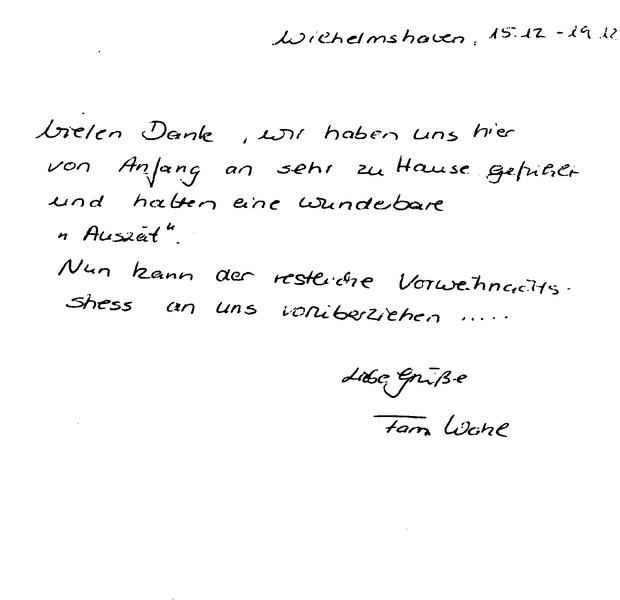 Wilhelmshaven, 15.12 - 19.12
Vielen Dank, wir haben uns hier
von Anfang an sehr zu Hause gefühlt
und hatten eine wunderbare
"Auszeit".
Nun kann der restliche Vorweihnachts-
stress an uns vorüberziehen .....
Liebe Grüße
Fam.